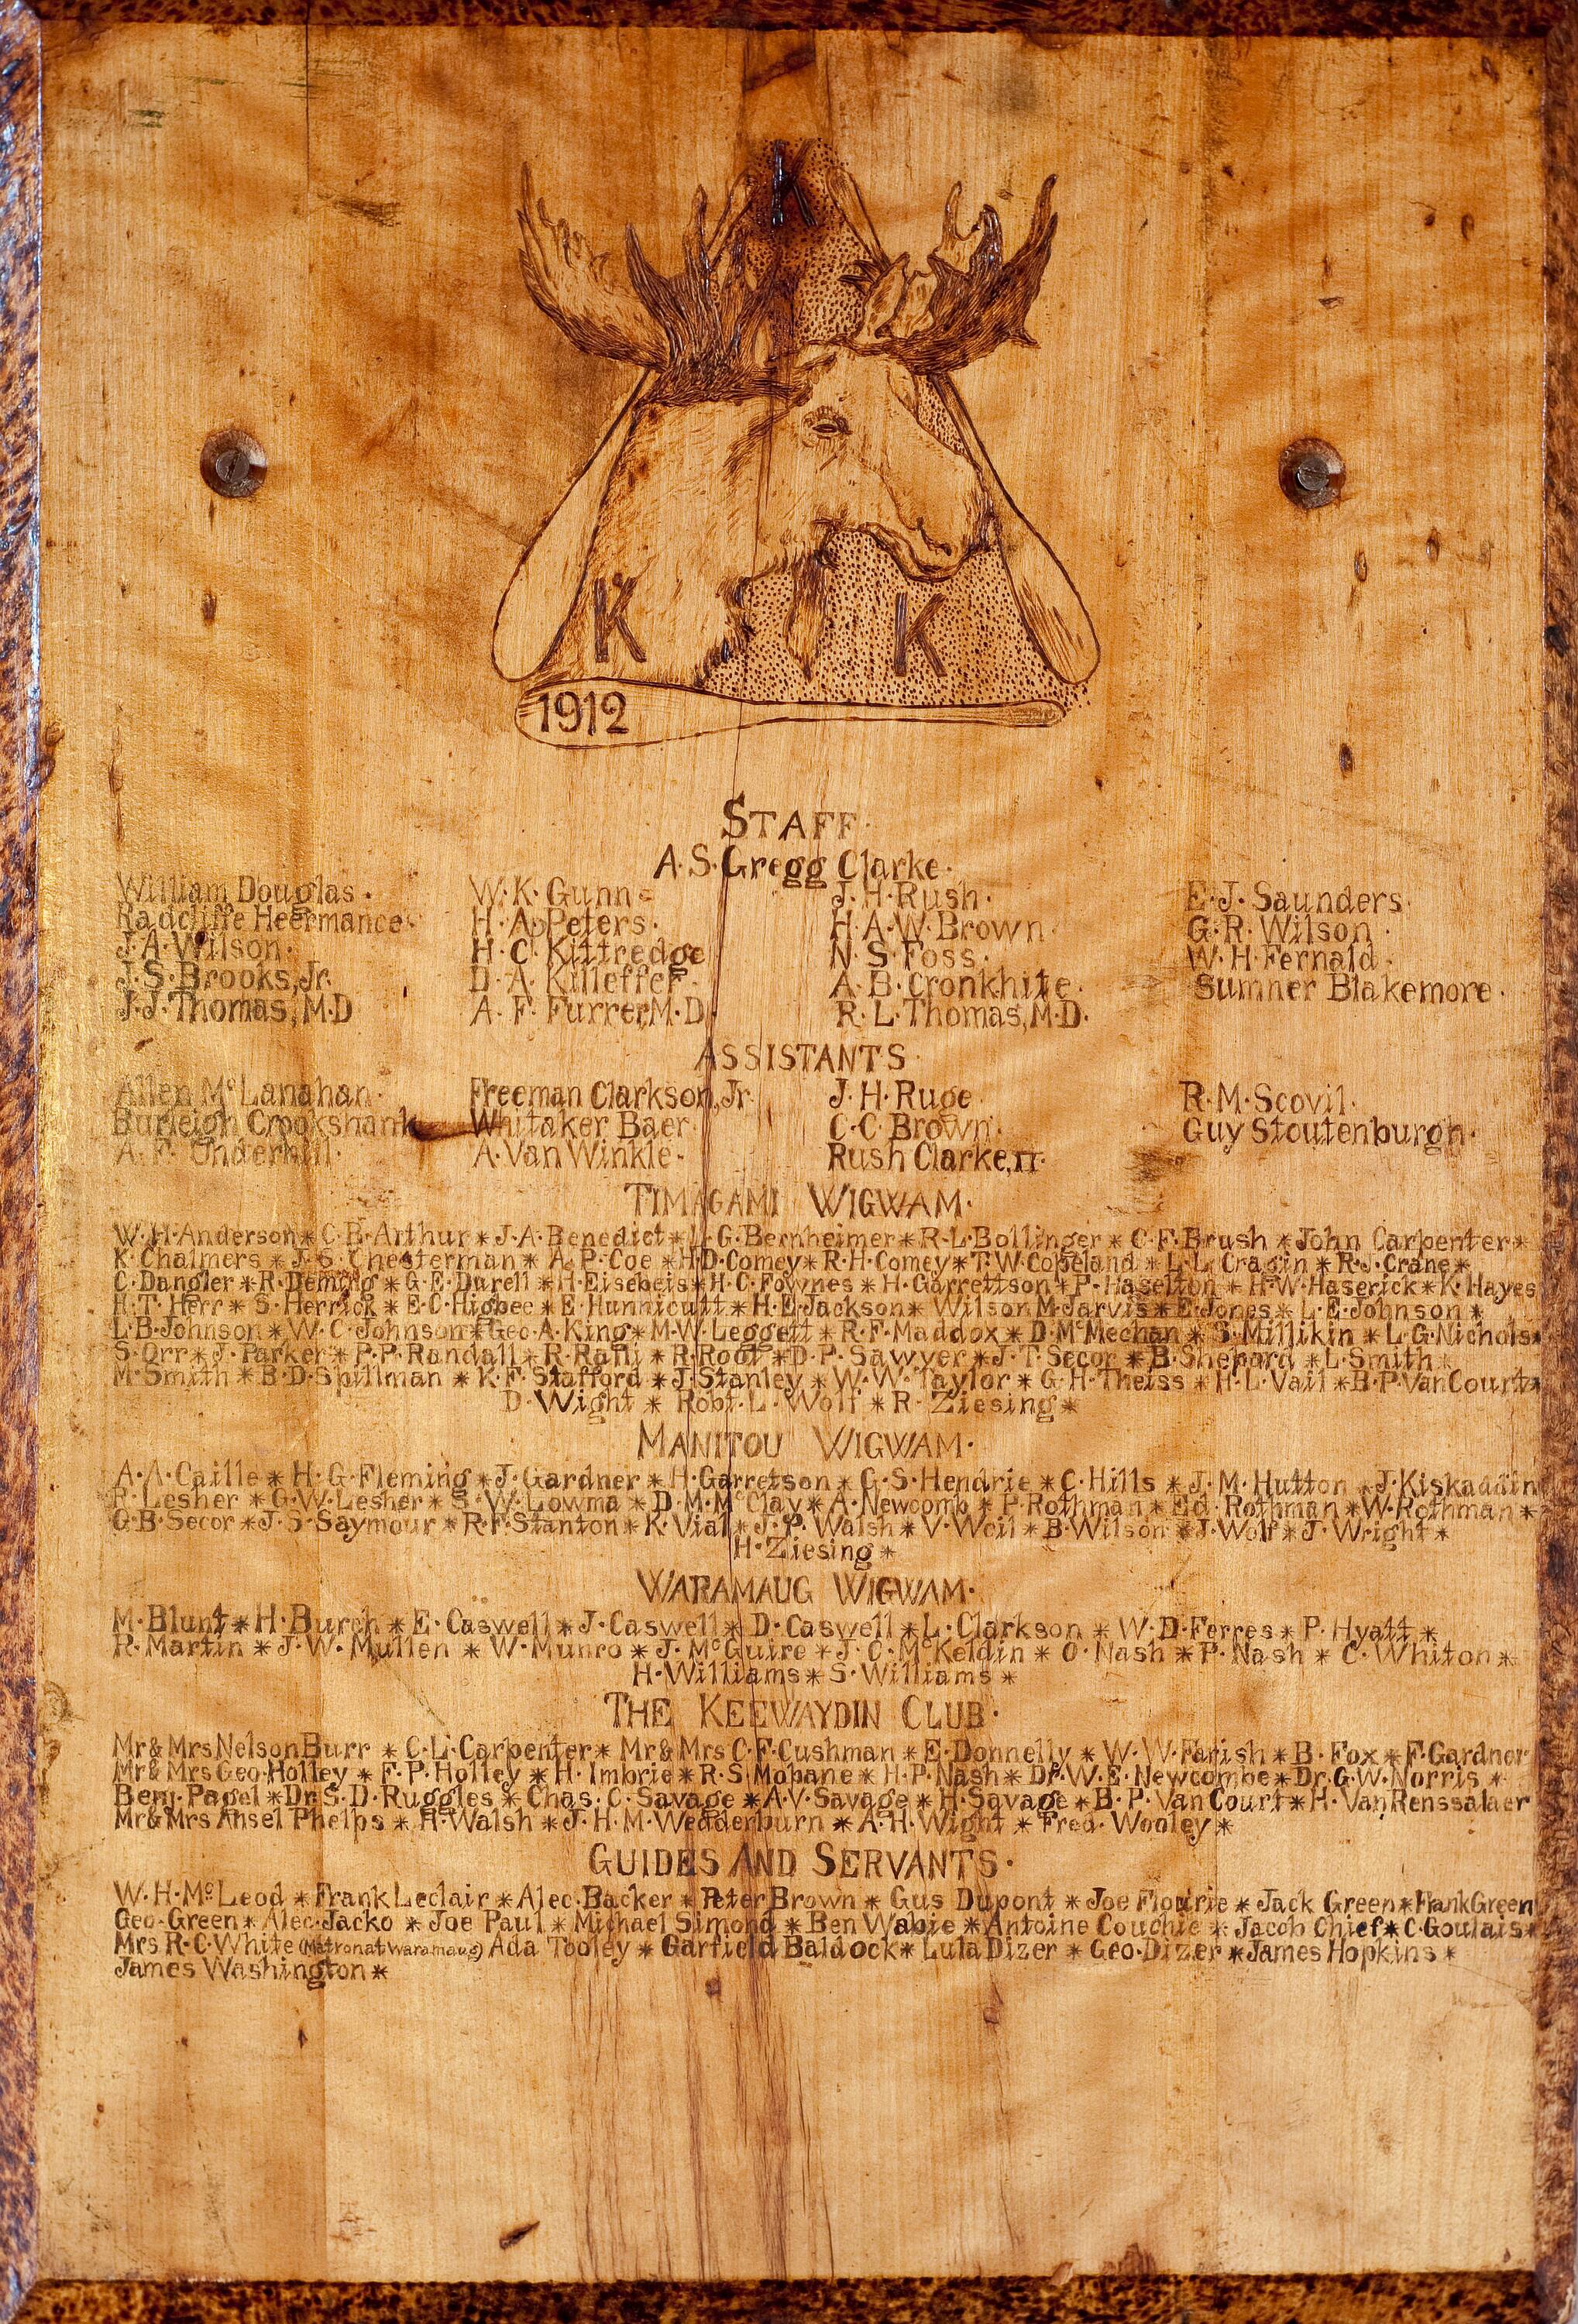 K
K K
1912
STAFF·
A·S·Gregg Clarke·
William Douglas· W·K·Gunn= J·H·Rush· E·J·Saunders·
Radcliffe Heermance· H·A·Peters· H·A·W·Brown· G·R·Wilson·
J·A·Wilson· H·C·Kittredge N·S·Foss· W·H·Fernald·
J·S·Brooks,Jr. D·A·Killeffer· A·B·Cronkhite· Sumner Blakemore·
J·J·Thomas,M·D A·F·Furrer,M·D· R·L·Thomas,M·D·
ASSISTANTS·
Allen McLanahan· Freeman Clarkson,Jr· J·H·Ruge· R·M·Scovil·
Burleigh Crookshank Whitaker Baer· C·C·Brown· Guy Stoutenburgh·
A·F·Underhill· A·Van Winkle· Rush Clarke,II·
TIMAGAMI WIGWAM·
W·H·Anderson * C·B·Arthur * J·A·Benedict * L·G·Bernheimer * R·L·Bollinger * C·F·Brush * John Carpenter *
K·Chalmers * J·S·Chesterman * A·P·Coe * H·D·Comey * R·H·Comey * T·W·Copeland * L·L·Cragin * R·J·Crane *
C·Dangler * R·Deming * G·E·Durell * H·Eisebeis * H·C·Fownes * H·Garrettson * P·Haselton * H·W·Haserick * K·Hayes
H·T·Herr * S·Herrick * E·C·Higbee * E·Hunnicutt * H·E·Jackson * Wilson M·Jarvis * E·Jones * L·E·Johnson *
L·B·Johnson * W·C·Johnson * Geo·A·King * M·W·Leggett * R·F·Maddox * D·McMechan * S·Millikin * L·G·Nichols *
S·Orr * J·Parker * P·P·Randall * R·Rahi * R·Root * D·P·Sawyer * J·T·Secor * B·Shepard * L·Smith *
M·Smith * B·D·Spillman * K·F·Stafford * J·Stanley * W·W·Taylor * G·H·Theiss * H·L·Vail * B·P·VanCourt *
D·Wight * Robt·L·Wolf * R·Ziesing *
MANITOU WIGWAM·
A·A·Caille * H·G·Fleming * J·Gardner * H·Garretson * G·S·Hendrie * C·Hills * J·M·Hutton * J·Kiskaddin
R·Lesher * G·W·Lesher * S·W·Lowma * D·M·McClay * A·Newcomb * P·Rothman * Ed·Rothman * W·Rothman *
G·B·Secor * J·S·Saymour * R·F·Stanton * K·Vial * J·P·Walsh * V·Weil * B·Wilson * J·Wolf * J·Wright *
H·Ziesing *
WARAMAUG WIGWAM·
M·Blunt * H·Burch * E·Caswell * J·Caswell * D·Caswell * L·Clarkson * W·D·Ferres * P·Hyatt *
R·Martin * J·W·Mullen * W·Munro * J·McGuire * J·C·McKeldin * O·Nash * P·Nash * C·Whiton *
H·Williams * S·Williams *
THE KEEWAYDIN CLUB·
Mr & Mrs Nelson Burr * C·L·Carpenter * Mr & Mrs C·F·Cushman * E·Donnelly * W·W·Farish * B·Fox * F·Gardner
Mr & Mrs Geo·Holley * F·P·Holley * H·Imbrie * R·S·Mobane * H·P·Nash * Dr·W·E·Newcombe * Dr·G·W·Norris *
Benj·Pagel * Dr·S·D·Ruggles * Chas·C·Savage * A·V·Savage * H·Savage * B·P·VanCourt * H·VanRenssalaer
Mr & Mrs Ansel Phelps * H·Walsh * J·H·M·Wedderburn * A·H·Wight * Fred·Wooley *
GUIDES AND SERVANTS·
W·H·McLeod * Frank Leclair * Alec·Backer * Peter Brown * Gus Dupont * Joe Flourie * Jack Green * Frank Green
Geo·Green * Alec·Jacko * Joe Paul * Michael Simond * Ben Wabie * Antoine Couchie * Jacob Chief * C·Goulais *
Mrs R·C·White (Matron at Waramaug) Ada Tooley * Garfield Baldock * Lula Dizer * Geo·Dizer * James Hopkins *
James Washington *